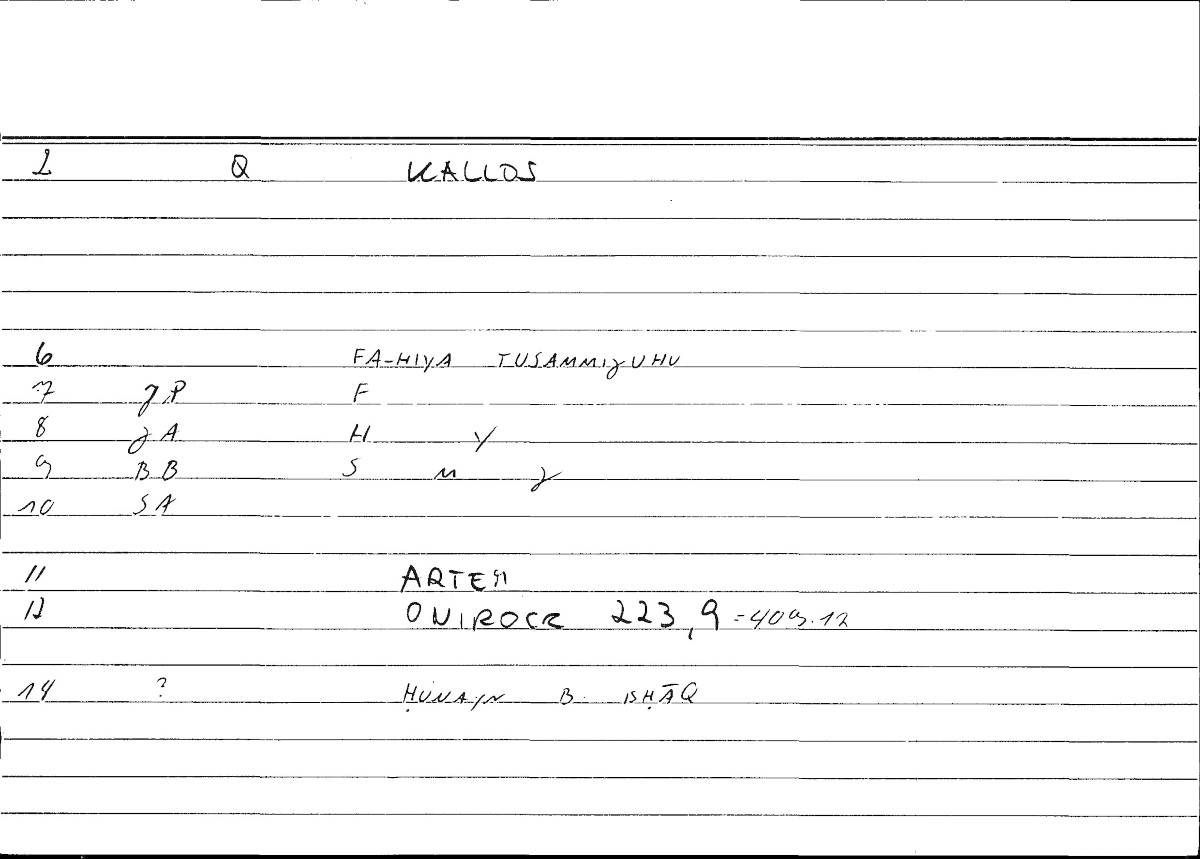 1 Q KALLOS
6 FA-HIYA TUSAMMIʒUHU
7 ʒP F
8 ʒA H Y
9 BB S M ʒ
10 SA
11 ARTEM
12 ONIROCR 223,9 = 409.12
14 ? ḤUNAYN B. ISḤĀQ